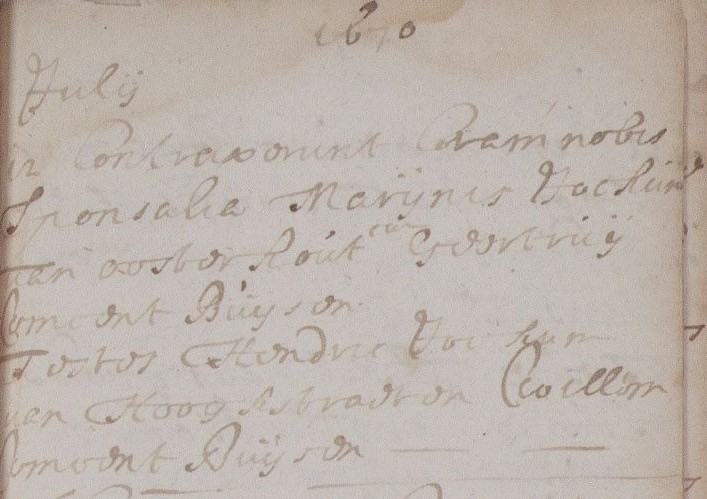 1670
Julij
12 Contraxerunt Coram nobis
Sponsalia Marijnis
van oosterhout cum Geertruij
Comoent Buijsen
Testes Hendric
van Hooghstraeten Willem
Comoent Buijsen